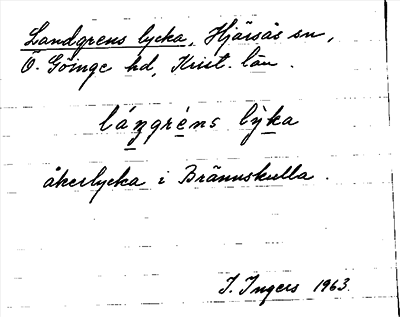 Landgrens lycka, Hjärsås sn,
Ö. Göinge hd, Krist. län.
lángrèns lỳka
åkerlycka i Brännskulla.
I. Ingers 1963.